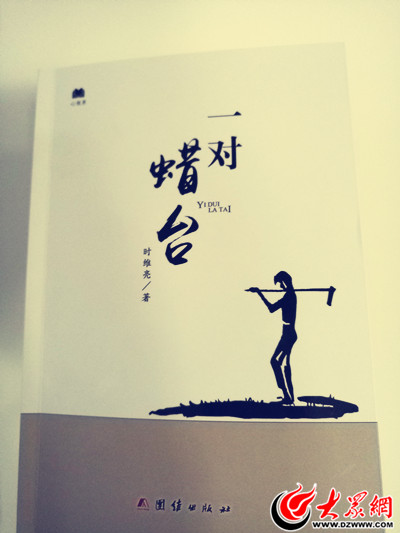 一对
蜡台
YI DUI
LA TAI
时维亮/著
团结出版社
大眾網
WWW.DZWWW.COM